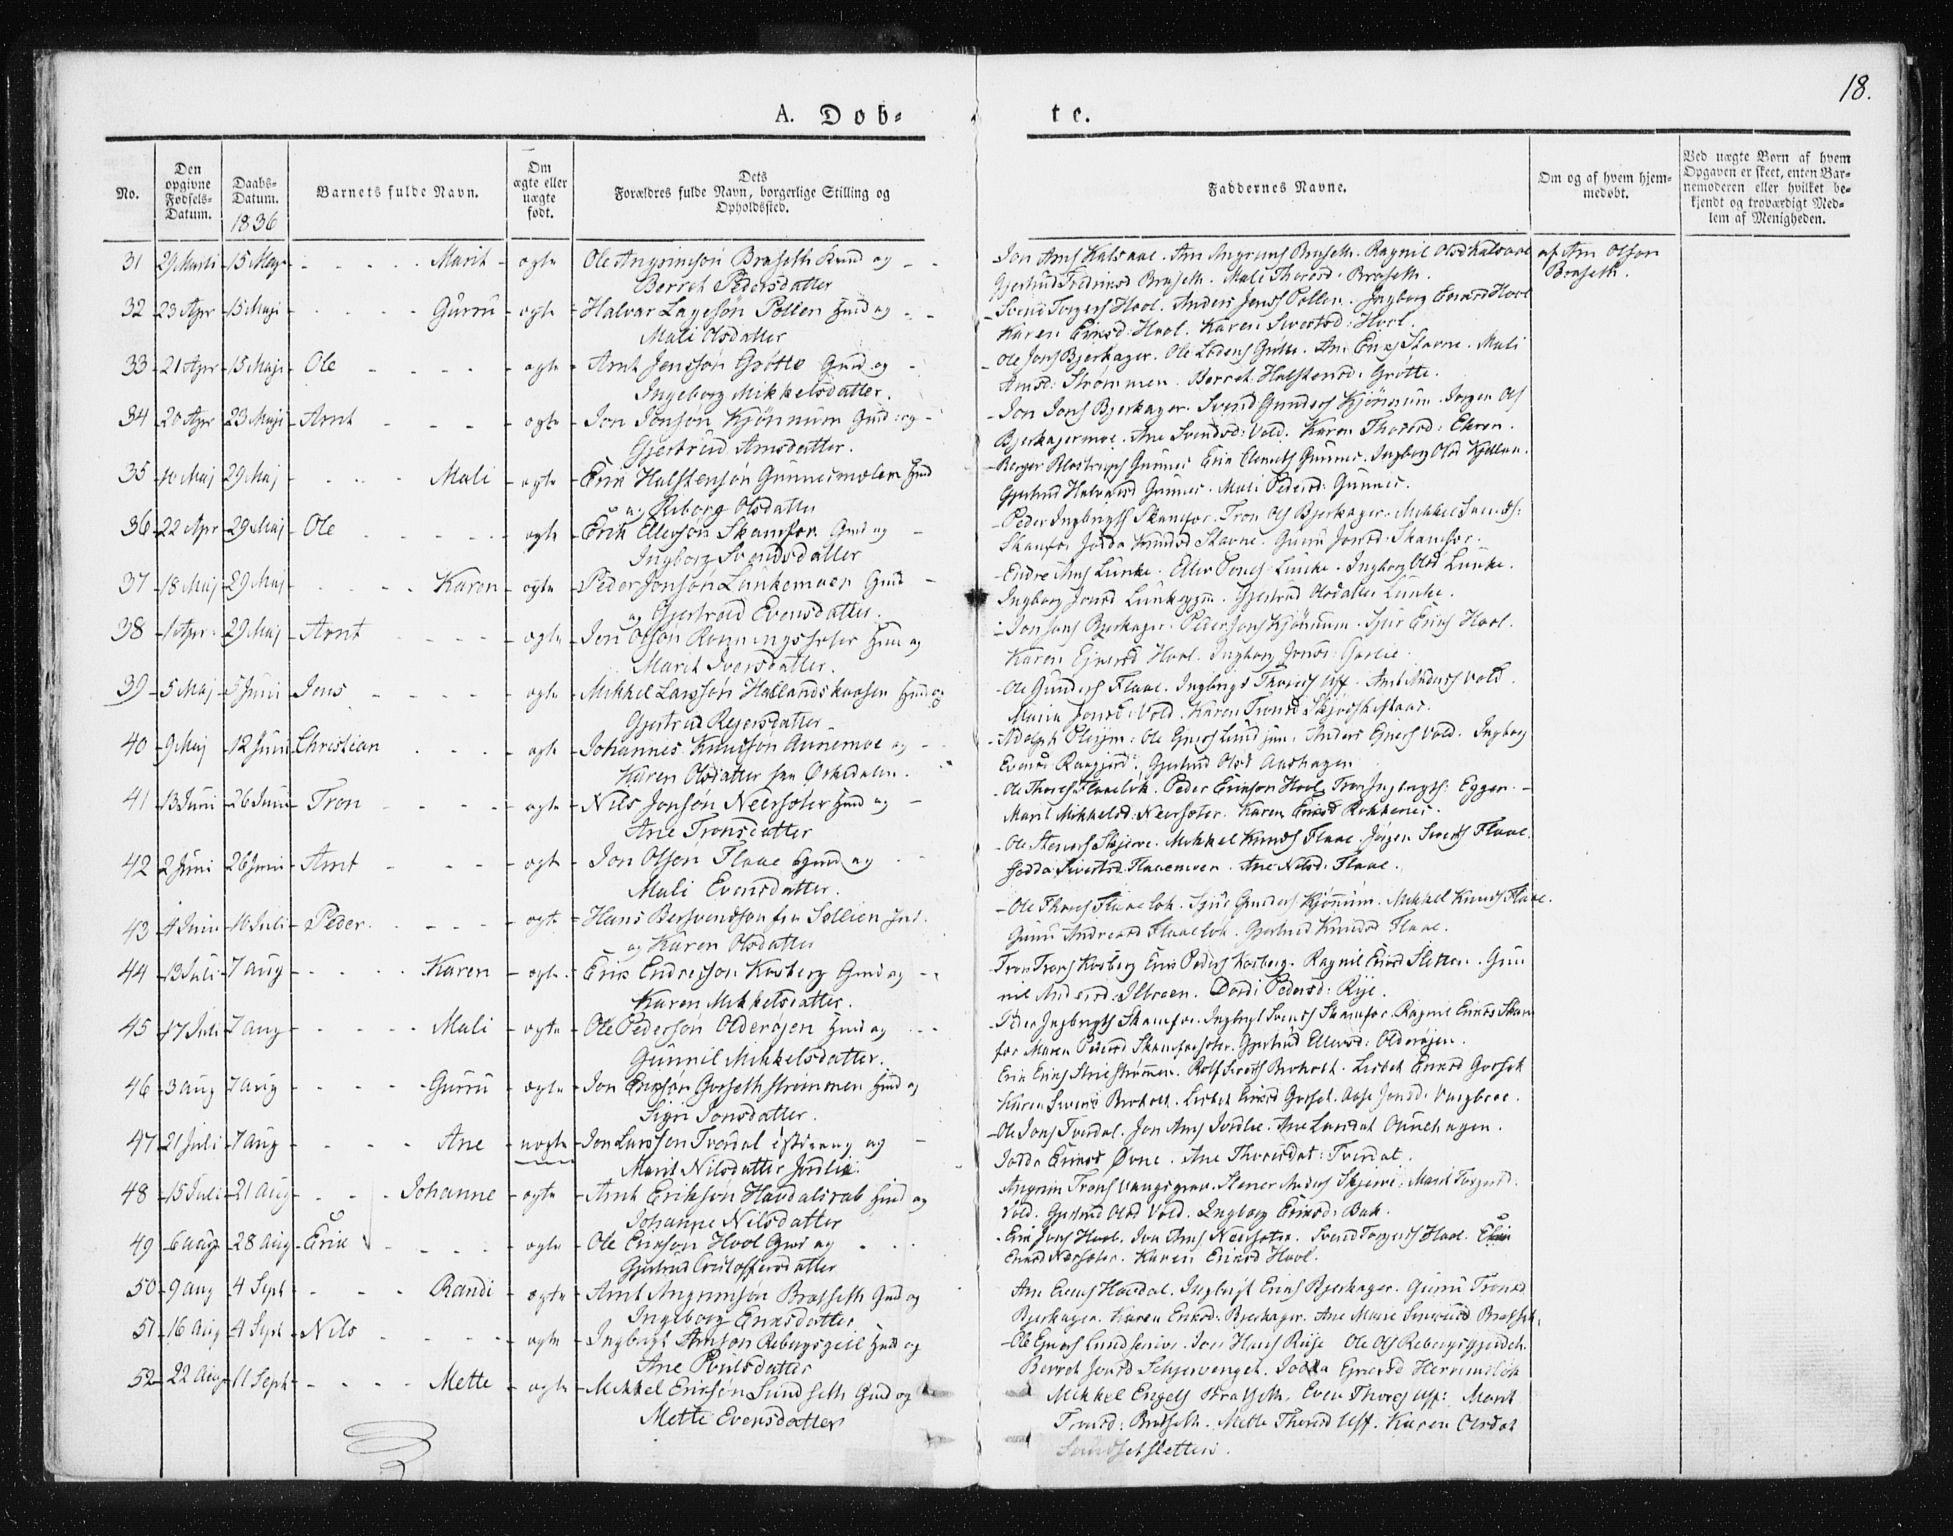 18.
A. Döb- te.
No.
Den opgivne Födsels-Datum.
Daabs-Datum. 1836
Barnets fulde Navn.
Om ægte eller uægte födt.
Dets Forældres fulde Navn, borgerlige Stilling og Opholdssted.
Faddernes Navne.
Om og af hvem hjemmedøbt.
Ved uægte Börn af hvem Opgaven er skeet, enten Barnemoderen eller hvilket bekjendt og troværdigt Medlem af Menigheden.
31 29 Marti 15 Maji Marit ægte Ole Angrimsøn Braseth Huud og
Berret Pedersdatter
Gjertrud Braseth. Mali Thoresd. Braseth.
af Arn Olson
Braseth.
32 23 Apr 15 Maji Gurru ægte Halvar Lagesøn Pollen Huud og
Mali Olsdatter
Karen Eriksd: Hool. Karen Sivertsd: Hool.
33 21 Apr 15 Maji Ole ægte Arnt Jenssøn Grøtte Gmd og
Ingeborg Mikkelsdatter.
Ole Jons Bjerkager. Ole Lodens Grøtte. Ane Eriks Stavne. Mali
Arnsd: Strømmen. Berret Halstensd: Grøtte.
34 20 Apr 23 Maji Arnt ægte Jon Jonsøn Kjønnum Gmd: og
Gjertrud Arnsdatter.
Jon Jons Bjerkager. Svend Gunders Kjønnum. Jørgen Ols
Bjerkagermoe. Ane Svendsd: Vold. Karen Thoresd:
35 10 Maj 29 Maj Mali ægte Erik Halstensøn Gunnesmoelen Hmd
og Olsdatter
Gjertrud Halvarsd Gunnes. Mali Pedersd: Gunnes.
36 22 Apr 29 Maj Ole ægte Erik Ellevsøn Skamfær Gmd og
Ingborg Svendsdatter
Peder Ingbrigts Skamfær. Tron Ols Bjerkager. Mikkel Svends:
Skamfær Jodda Knudsd Stavne. Gurru Jonsd: Skamfær.
37 18 Maj 29 Maj Karen ægte Peder Jonsøn Lunkemoen Gmd
og Gjertrud Evensdatter.
Endre Arns Lunke. Ellev Jons Lunke. Ingborg Olsd Lunke.
Ingborg Jonsd Gjertrud Olsdatter Lunke.
38 1 Apr: 29 Maj Arnt ægte Jon Olson Ronningssæter Huud og
Marit Iversdatter.
Jon Jons Bjerkager. Peder Jons Kjønnum. Sjur Eriks Hool.
Karen Ejnersd Hool. Ingborg Jonsd:
39 5 Maj 5 Juni Jens ægte Mikkel Larssøn Hallandskaasen Huud og
Gjertrud Rejersdatter
Ole Gunders Flaae. Ingbrigt Thores Uff. Arnt Anders Vold.
Maria Jonsd: Vold. Karen Tronsd:
40 9 Maj 12 Juni Christian ægte Johannes Knudsøn Aunemoe og
Karen Olsdatter fra Ørkedalen.
Adolph Ole Ejners Lund jun. Anders Ejners Vold. Ingborg
Evensd Gjertrud Olsd Aashagen
41 13 Juni 26 Juni Tron ægte Nils Jonsøn Neersæter Huud og
Ane Tronsdatter
Ole Thores Flaaeløk. Peder Erikson Hool Tron Ingbrigts: Eggen.
Marit Mikkelsd: Neersæter. Karen Eriksd Rokkenes.
42 2 Juni 26 Juni Arnt ægte Jon Olsøn Flaae Huud og
Mali Evensdatter.
Ole Steners Skjerve. Mikkel Knuds Flaae. Jørgen Siverts Flaae.
Jodda Sivertsd Flaaemoen. Ane Nilsd: Flaae.
43 4 Juni 10 Juli Peder ægte Hans Bersvendson fra Sollien
og Karen Olsdatter
Ole Thores Flaaeløk. Sjur Gunders Kjønnum. Mikkel Knuds Flaae.
Gurru Andreasd Flaaeløk. Gjertrud Knudsd Flaae.
44 13 Juli 7 Aug Karen ægte Erik Endresson Kosberg Gmd og
Karen Mikkelsdatter.
Tron Trons Kosberg Erik Peders Kosberg. Ragnil Eriksd Sletten. Gun
nil Andersd. Dordi Pedersd: Rye.
45 17 Juli 7 Aug Mali ægte Ole Pedersøn Olderøjen Huud og
Gunnil Mikkelsdatter.
Peder Ingbrigts Skamfær. Ingbrigt Svends Skamfær. Ragnil Eriksd Skam
fær Maren Pedersd Skamfærsæter. Gjertrud Ellevsd: Olderøjen.
46 3 Aug 7 Aug Gurru ægte Jon Eriksøn Gorsethstrømmen Huud og
Sigri Jonsdatter.
Rolf Siverts Broholt. Lisbet Eriksd Gorset
Karen Broholt. Lisbet Eriksd Gorset. Aase Jonsd:
47 21 Juli 7 Aug Ane uægte Jon Larssøn Tverdal og
Marit Nilsdatter Jordlie.
Ole Jons Tverdal. Jon Arns Jordlie. Aunehagen.
Jodda Eriksd Øvne. Ane Thoresdat: Tverdal.
48 15 Juli 21 Aug Johanne ægte Arnt Eriksøn Havdalsrab Huud og
Johanne Nilsdatter
Angrim Trons Stener Anders Skjerve. Marit Torgersd:
Vold. Gjertrud Olsd Vold. Ingborg Eriksd: Bak.
49 6 Aug 28 Aug Erik ægte Ole Eriksøn Hool Gmd og
Gjertrud Cristoffersdatter
Erik Jons Hool. Jon Arns Neersæter. Svend Torgers Hool.
Eriksd Neersæter. Karen Eriksd Hool.
50 9 Aug 4 Sept Randi ægte Arnt Angrimsøn Brasseth Gmd og
Ingeborg Eriksdatter
Havdal. Ingbrigt Eriks Bjerkager. Gurru Tronsd
Bjerkager. Karen Eriksd: Bjerkager. Ane Marie Brasset.
51 16 Aug 4 Sept Nils ægte Ingbrigt Arnson Rebergsgeil Huud og
Ane Poulsdatter
Ole Ejners Lund senior. Jon Hans Riise Ole Ols
Berret Jonsd Jodda
52 22 Aug 11 Sept Mette ægte Mikkel Eriksøn Sundseth Gmd og
Mette Evensdatter
Mikkel Engels Brasseth. Even Thores Uff: Marit
Tronsd: Brasseth. Mette Thoresd Uff. Karen Olsdat
Sundsetsletten.